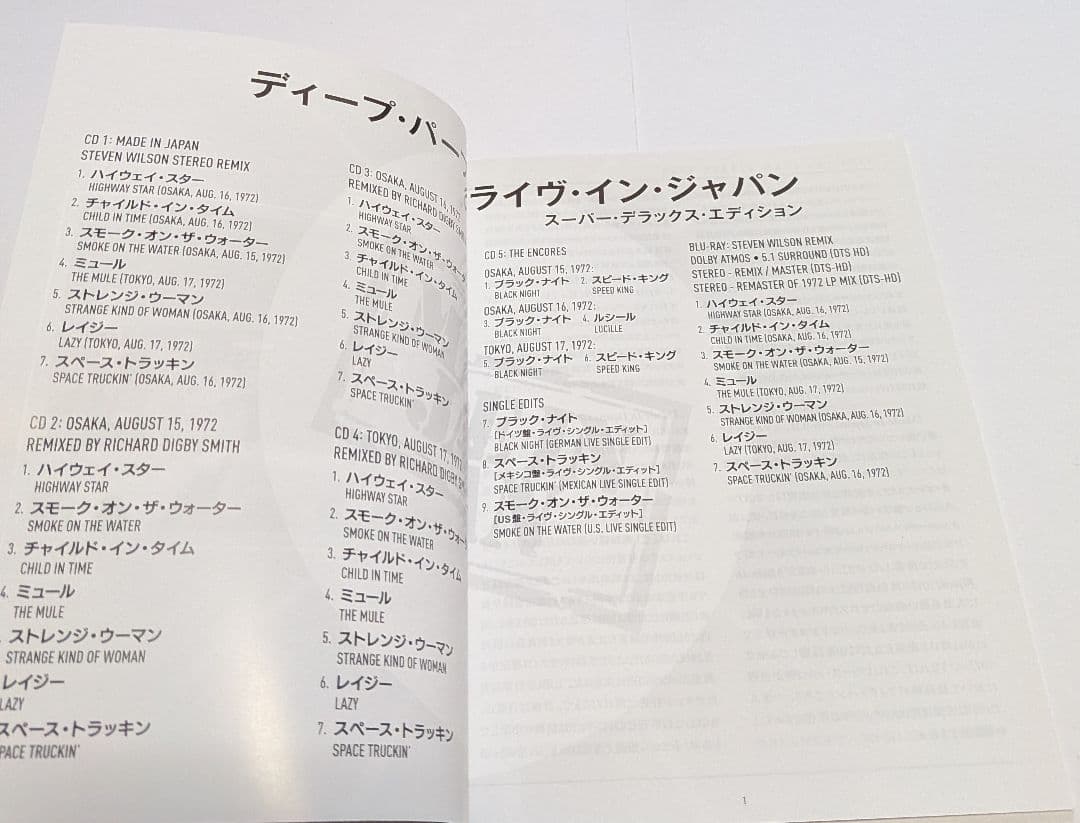 ディープ・パー
CD 1: MADE IN JAPAN
STEVEN WILSON STEREO REMIX
1. ハイウェイ・スター
HIGHWAY STAR (OSAKA, AUG. 16, 1972)
2. チャイルド・イン・タイム
CHILD IN TIME (OSAKA, AUG. 16, 1972)
3. スモーク・オン・ザ・ウォーター
SMOKE ON THE WATER (OSAKA, AUG. 15, 1972)
4. ミュール
THE MULE (TOKYO, AUG. 17, 1972)
5. ストレンジ・ウーマン
STRANGE KIND OF WOMAN (OSAKA, AUG. 16, 1972)
6. レイジー
LAZY (TOKYO, AUG. 17, 1972)
7. スペース・トラッキン
SPACE TRUCKIN' (OSAKA, AUG. 16, 1972)
CD 2: OSAKA, AUGUST 15, 1972
REMIXED BY RICHARD DIGBY SMITH
1. ハイウェイ・スター
HIGHWAY STAR
2. スモーク・オン・ザ・ウォーター
SMOKE ON THE WATER
3. チャイルド・イン・タイム
CHILD IN TIME
4. ミュール
THE MULE
ストレンジ・ウーマン
STRANGE KIND OF WOMAN
レイジー
LAZY
スペース・トラッキン
PACE TRUCKIN'
CD 3: OSAKA, AUGUST 16, 1972
REMIXED BY RICHARD DIGBY
1. ハイウェイ・スター
HIGHWAY STAR
2. スモーク・オン・ザ・ウォータ
SMOKE ON THE WATER
3. チャイルド・イン・タイム
CHILD IN TIME
4. ミュール
THE MULE
5. ストレンジ・ウーマン
STRANGE KIND OF WOMAN
6. レイジー
LAZY
7. スペース・トラッキン
SPACE TRUCKIN'
CD 4: TOKYO, AUGUST 17, 1972
REMIXED BY RICHARD DIGBY
1. ハイウェイ・スター
HIGHWAY STAR
2. スモーク・オン・ザ・ウォー
SMOKE ON THE WATER
3. チャイルド・イン・タイム
CHILD IN TIME
4. ミュール
THE MULE
5. ストレンジ・ウーマン
STRANGE KIND OF WOMAN
6. レイジー
LAZY
7. スペース・トラッキン
SPACE TRUCKIN'
ライヴ・イン・ジャパン
スーパー・デラックス・エディション
CD 5: THE ENCORES
OSAKA, AUGUST 15, 1972:
1. ブラック・ナイト 2. スピード・キング
BLACK NIGHT SPEED KING
OSAKA, AUGUST 16, 1972:
3. ブラック・ナイト 4. ルシール
BLACK NIGHT LUCILLE
TOKYO, AUGUST 17, 1972:
5. ブラック・ナイト 6. スピード・キング
BLACK NIGHT SPEED KING
SINGLE EDITS
7. ブラック・ナイト
[ドイツ盤・ライヴ・シングル・エディット]
BLACK NIGHT (GERMAN LIVE SINGLE EDIT)
8. スペース・トラッキン
[メキシコ盤・ライヴ・シングル・エディット]
SPACE TRUCKIN' (MEXICAN LIVE SINGLE EDIT)
9. スモーク・オン・ザ・ウォーター
[US盤・ライヴ・シングル・エディット]
SMOKE ON THE WATER (U.S. LIVE SINGLE EDIT)
BLU-RAY: STEVEN WILSON REMIX
DOLBY ATMOS • 5.1 SURROUND (DTS HD)
STEREO - REMIX / MASTER (DTS-HD)
STEREO - REMASTER OF 1972 LP MIX (DTS-HD)
1. ハイウェイ・スター
HIGHWAY STAR (OSAKA, AUG. 16, 1972)
2. チャイルド・イン・タイム
CHILD IN TIME (OSAKA, AUG. 16, 1972)
3. スモーク・オン・ザ・ウォーター
SMOKE ON THE WATER (OSAKA, AUG. 15, 1972)
4. ミュール
THE MULE (TOKYO, AUG. 17, 1972)
5. ストレンジ・ウーマン
STRANGE KIND OF WOMAN (OSAKA, AUG. 16, 1972)
6. レイジー
LAZY (TOKYO, AUG. 17, 1972)
7. スペース・トラッキン
SPACE TRUCKIN' (OSAKA, AUG. 16, 1972)
1